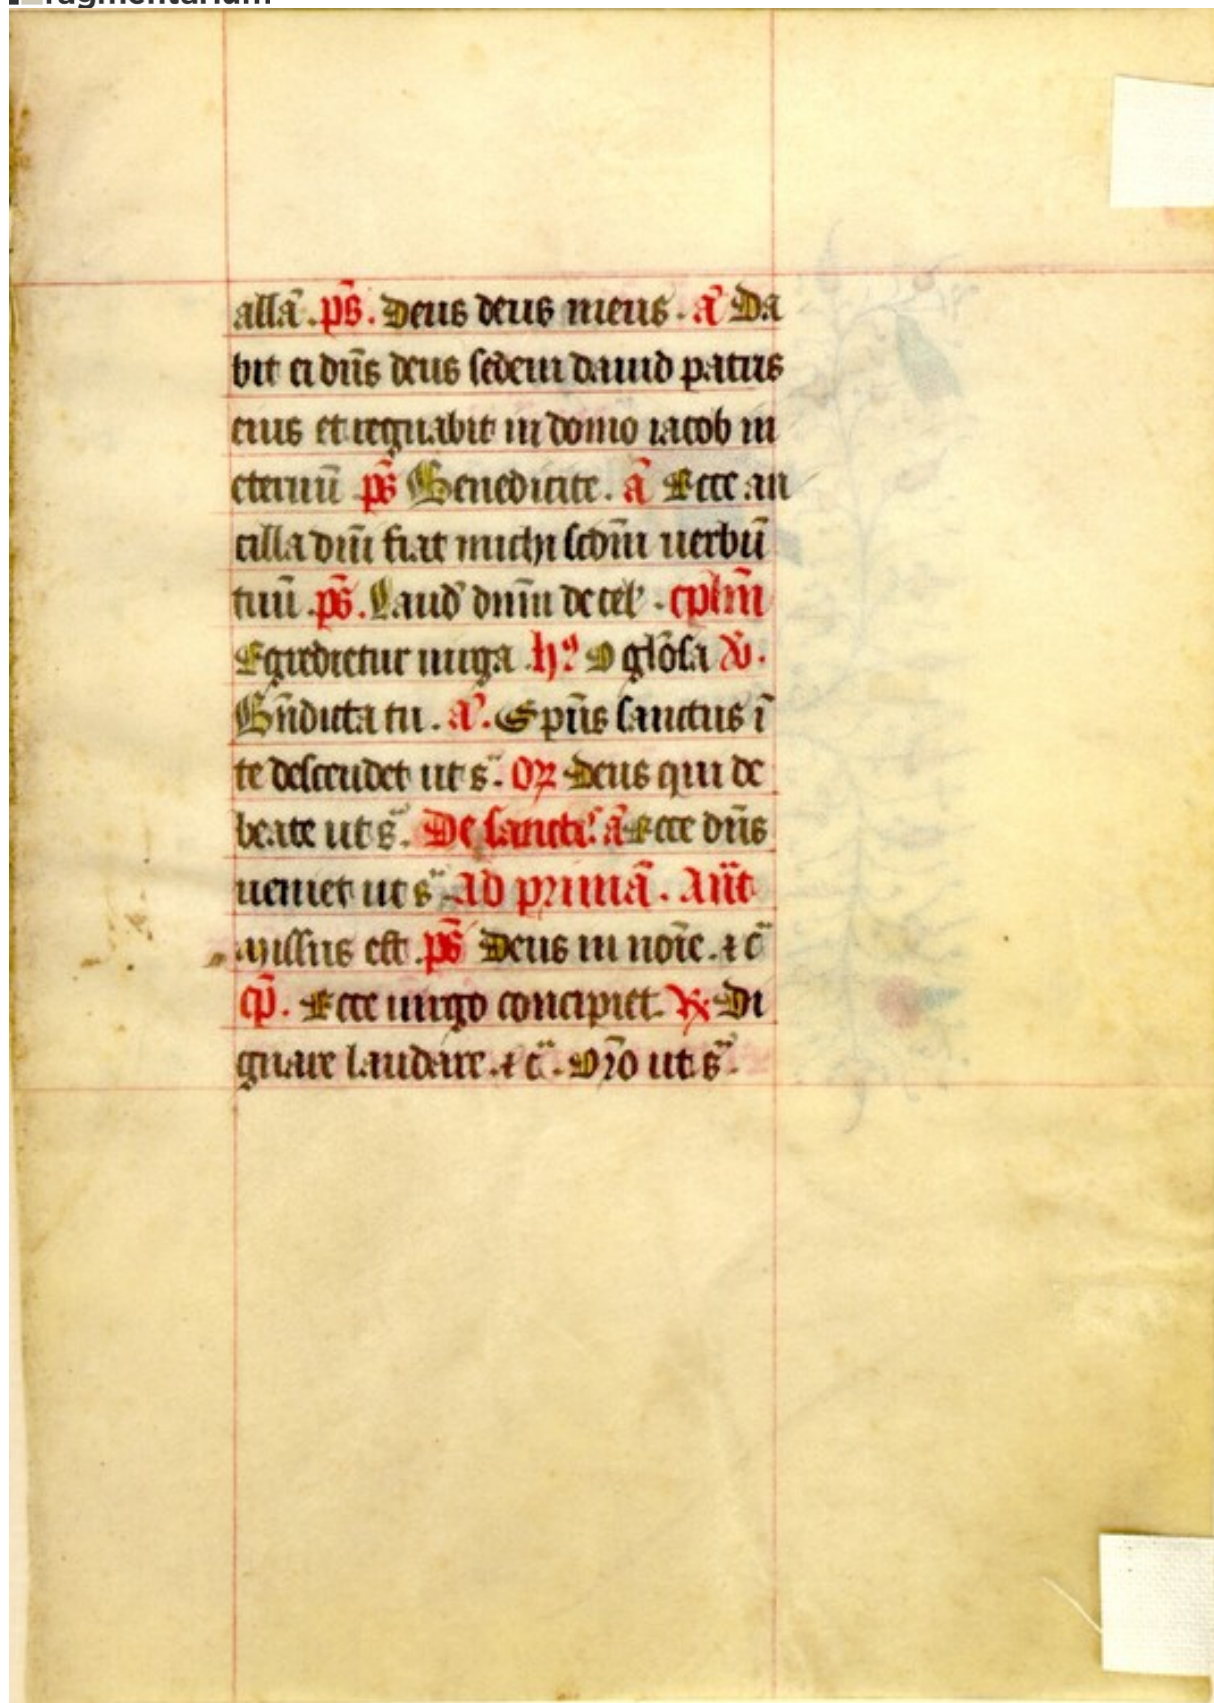 ragmentarium
allā. p̄s. Deus deus meus. ā Da
bit ei dn̄s deus sedem dauid patris
eius et regnabit in domo iacob in
eternū p̄s Benedicite. ā Ecce an
cilla dn̄i fiat michi scd̄m uerbū
tuū. p̄s. Laud' dn̄m de cel'. cplm̄
Egredietur uirga. h⁹ O glōsa v̄.
Bn̄dicta tu. ā. Sp̄us sanctus ī
te descendet ut s̄. oꝝ Deus qui de
beate ut s̄. De sanctis. ā Ecce dn̄s
ueniet ut s̄ Ad primā. An̄t
missus est. p̄s Deus in noīe. ⁊ c̄
cp̄. Ecce uirgo concipiet. ℟ Di
gnare laudare. ⁊ c̄. Orō ut s̄.